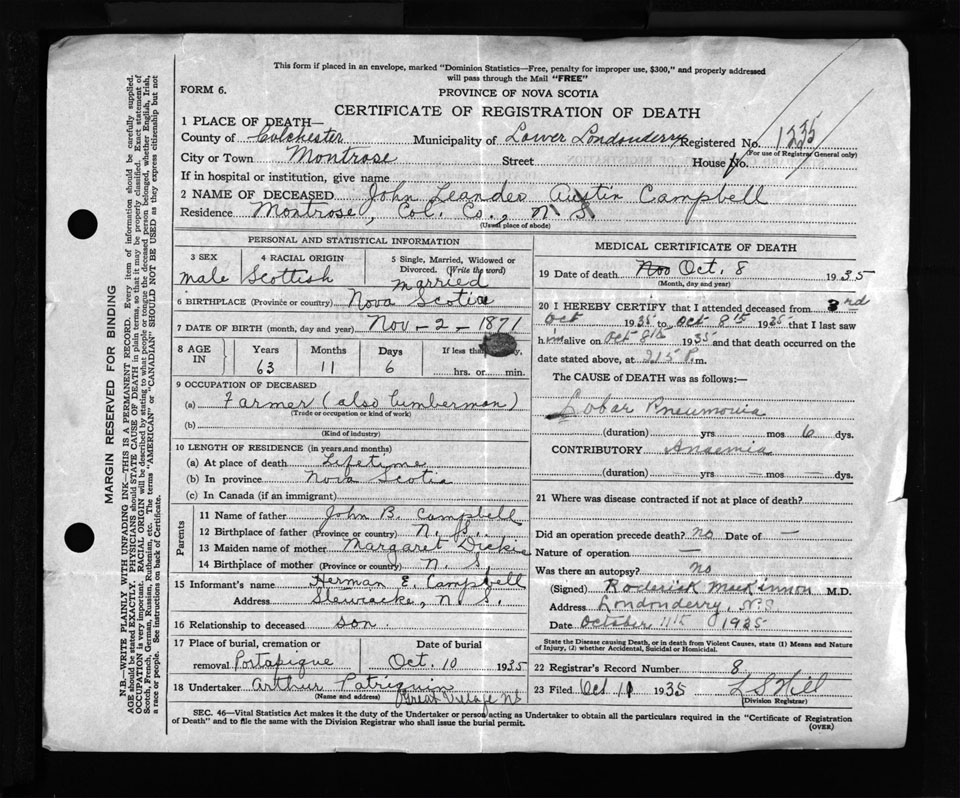 This form if placed in an envelope, marked "Dominion Statistics—Free, penalty for improper use, $300," and properly addressed
will pass through the Mail "FREE"
FORM 6.
PROVINCE OF NOVA SCOTIA
CERTIFICATE OF REGISTRATION OF DEATH
1 PLACE OF DEATH—
County of Colchester Municipality of Lower Londonderry Registered No. 1235
(For use of Registrar General only)
City or Town Montrose Street House No.
If in hospital or institution, give name
2 NAME OF DECEASED John Leander Austin Campbell
Residence Montrose, Col. Co., N S
(Usual place of abode)
PERSONAL AND STATISTICAL INFORMATION
3 SEX 4 RACIAL ORIGIN 5 Single, Married, Widowed or
Divorced. (Write the word)
male Scottish married
6 BIRTHPLACE (Province or country) Nova Scotia
7 DATE OF BIRTH (month, day and year) Nov - 2 - 1871
8 AGE IN Years Months Days If less than day,
63 11 6 hrs. or min.
9 OCCUPATION OF DECEASED
(a) Farmer (also lumberman)
(Trade or occupation or kind of work)
(b)
(Kind of industry)
10 LENGTH OF RESIDENCE (in years and months)
(a) At place of death Lifetime
(b) In province Nova Scotia
(c) In Canada (if an immigrant)
Parents
11 Name of father John B. Campbell
12 Birthplace of father (Province or country) N. S.
13 Maiden name of mother Margaret Dickie
14 Birthplace of mother (Province or country) N. S.
15 Informant's name Herman E. Campbell
Address N S.
16 Relationship to deceased son
17 Place of burial, cremation or Date of burial
removal Portapique Oct. 10 1935
18 Undertaker Arthur Patriquin
(Name and address) Great Village NS
MEDICAL CERTIFICATE OF DEATH
19 Date of death Nov Oct. 8 1935
(Month, day and year)
20 I HEREBY CERTIFY that I attended deceased from 3rd
Oct 1935 to Oct 8th 1935 that I last saw
him alive on Oct 8th 1935 and that death occurred on the
date stated above, at 215 P.m.
The CAUSE of DEATH was as follows:—
Lobar Pneumonia
(duration) yrs mos 6 dys.
CONTRIBUTORY Anaemia
(duration) — yrs — mos — dys.
21 Where was disease contracted if not at place of death?
Did an operation precede death? no Date of —
Nature of operation —
Was there an autopsy? no
(Signed) Roderick MacKinnon M.D.
Address Londonderry, NS
Date October 11th 1935
State the Disease causing Death, or in death from Violent Causes, state (1) Means and Nature
of Injury, (2) whether Accidental, Suicidal or Homicidal.
22 Registrar's Record Number 8
23 Filed Oct 11 1935 L S Hill
(Division Registrar)
SEC. 46—Vital Statistics Act makes it the duty of the Undertaker or person acting as Undertaker to obtain all the particulars required in the "Certificate of Registration
of Death" and to file the same with the Division Registrar who shall issue the burial permit.
(OVER)
MARGIN RESERVED FOR BINDING
N.B.—WRITE PLAINLY WITH UNFADING INK—THIS IS A PERMANENT RECORD. Every item of information should be carefully supplied.
AGE should be stated EXACTLY. PHYSICIANS should STATE CAUSE OF DEATH in plain terms, so that it may be properly classified. Exact statement of
OCCUPATION is very important. RACIAL ORIGIN will be described by stating to what people or tongue the deceased person belonged, whether English, Irish,
Scotch, French, German, Russian, Ruthenian, etc. The terms "AMERICAN" or "CANADIAN" SHOULD NOT BE USED as they express citizenship but not
a race or people. See instructions on back of Certificate.